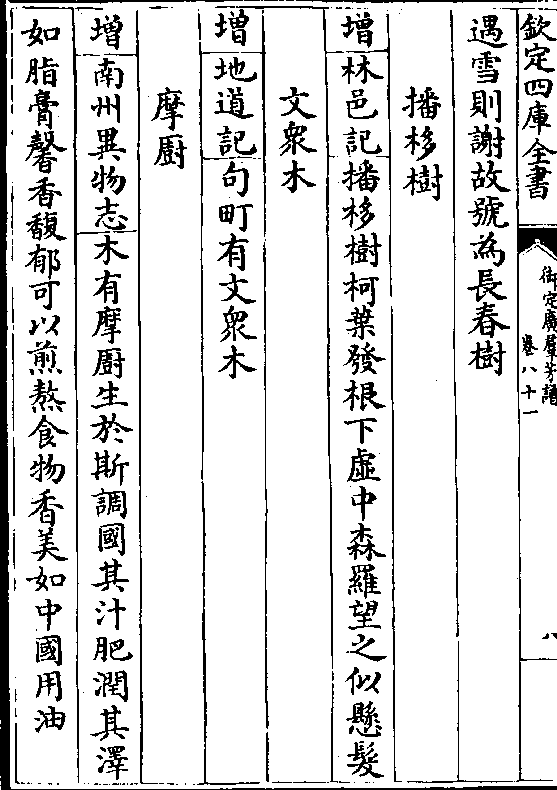 欽定四庫全書
御定廣羣芳譜
卷八十一
八
遇雪則謝故號為長春樹
播移樹
增林邑記播移樹柯葉發根下虛中森羅望之似懸髮
文衆木
增地道記句町有文衆木
摩厨
增南州異物志木有摩厨生於斯調國其汁肥潤其澤
如脂膏馨香馥郁可以煎熬食物香美如中國用油